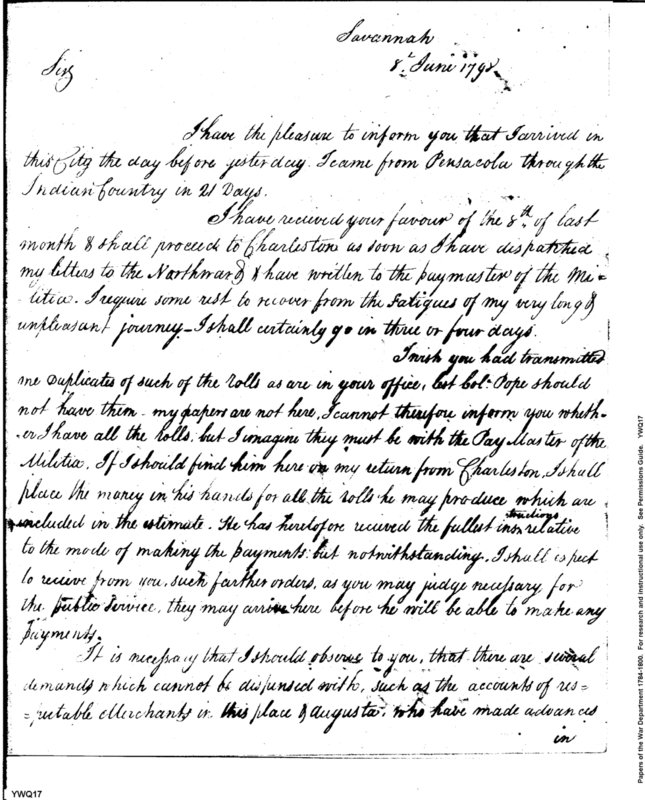 Savannah
8th June 1798
Sir,
I have the pleasure to inform you that I arrived in
this City the day before yesterday. I came from Pensacola through the
Indian Country in 21 Days.
I have received your favour of the 8th of last
month & shall proceed to Charlestone as soon as I have dispatched
my letters to the Northward & have written to the paymaster of the Mi=
litia. I require some rest to recover from the Fatigues of my very long &
unpleasant journey - I shall certainly go in three or four days.
I wish you had transmitted
me Duplicates of such of the Rolls as are in your office, lest Col. Pope should
not have them - my papers are not here, I cannot therefore inform you wheth-
er I have all the rolls, but I imagine they must be with the Pay Master of the
Militia. If I should find him here on my return from Charleston, I shall
place the money in his hands for all the rolls he may produce which are
included in the estimate. He has heretofore received the fullest instructions relative
to the mode of making the payments but notwithstanding, I shall expect
to receive from you, such farther orders, as you may judge necessary for
the public service, they may arrive here before he will be able to make any
payments.
It is necessary that I should observe to you, that there are several
demands which cannot be dispensed with, such as the accounts of res=
=pectable Merchants in this place & Augusta, who have made advances
in
YWQ17
Papers of the War Department 1784-1800. For research and instructional use only. See Permissions Guide. YWQ17